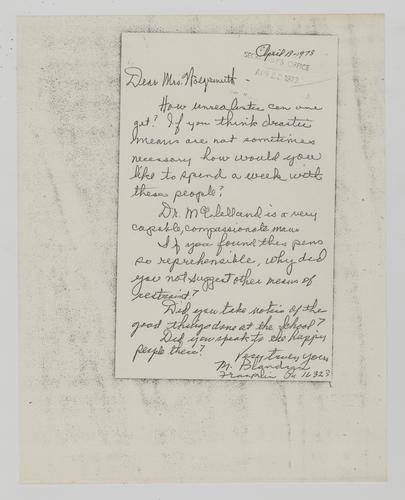 April 18-1973
SECRETARY'S OFFICE
Dear Mrs.
How unrealistic can one
get? If you think drastic
means are not sometimes
necessary how would you
like to spend a week with
these people?
Dr. McClelland is a very
capable, compassionate man.
If you found this pens
so reprehensible, why did
you not suggest other means of
restraint?
Did you take notice of the
good things done at the school?
Did you speak to the happy
people there?
Very truly yours
M.
Franklin Pa 16323